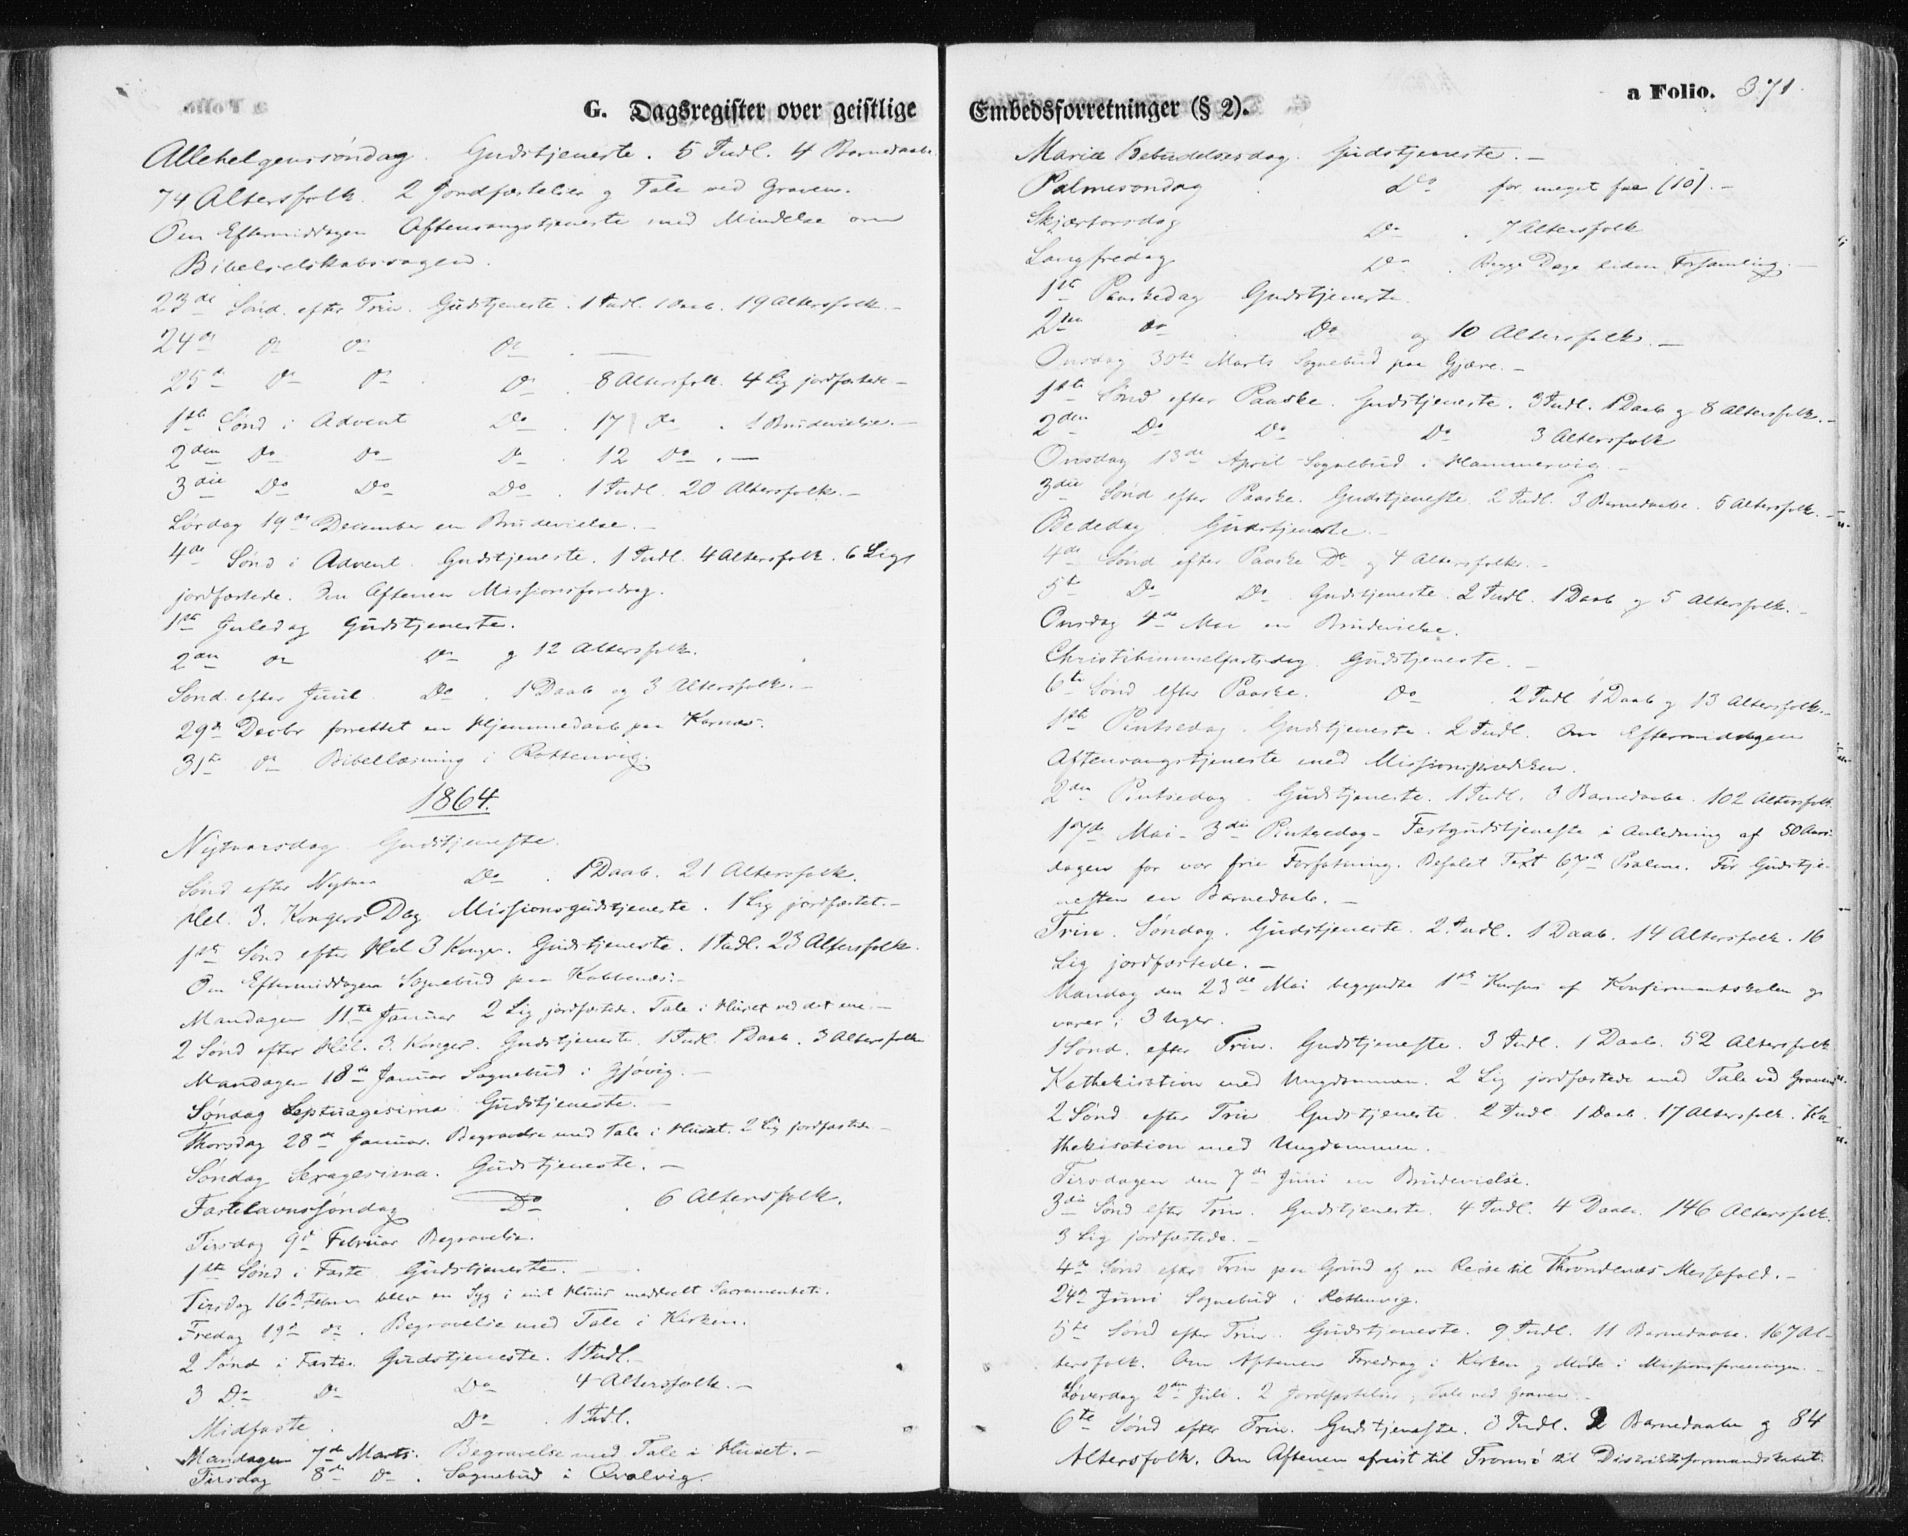 G. Dagsregister over geistlige
Allehelgenssøndag. Gudstjeneste. 5 Indl. 4 Barnedaab.
74 Altersfolk. 2 Jordfæstelser og Tale ved Graven.
Om Eftermiddagen Aftensangstjeneste med Mindelse om
Bibelselskabssagen.
23de Sønd. efter Trin. Gudstjeneste. 1 Indl. 1 Daab. 19 Altersfolk. –
24de Do Do Do . —
25de Do Do . Do . 8 Altersfolk. 4 Lig jordfæstede –
1ste Sønd i Advent Do . 17 Do . 1 Brudevielse. –
2den Do Do Do . 12 Do . –
3die Do Do Do . 1 Indl. 20 Altersfolk. –
Lørdag 19de December en Brudevielse. –
4de Sønd i Advent. Gudstjeneste. 1 Indl. 4 Altersfolk. 6 Lig
jordfæstede. Om Aftenen Missionsforedrag.
1ste Juledag Gudstjeneste.
2den Do Do og 12 Altersfolk.
Sønd. efter Juul. Do . 1 Daab og 3 Altersfolk. –
29de Decbr forrettet en Hjemmedaab paa
31te Do Bibellæsning i Rottenvig.
1864.
Nytaarsdag Gudstjeneste.
Sønd efter Nytaar Do . 1 Daab. 21 Altersfolk.
Hel. 3. Kongers Dag Missionsgudstjeneste. 1 Lig jordfæstet. –
1ste Sønd efter Hel 3 Konger. Gudstjeneste. 1 Indl. 23 Altersfolk.
Om Eftermiddagen Sognebud paa
Mandagen 11te Januar 2 Lig jordfæstede. Tale i Huset ved det ene. –
2 Sønd efter Hel. 3. Konger. Gudstjeneste. 1 Indl. 1 Daab. 3 Altersfolk
Mandagen 18de Januar Sognebud i Gjøvig. –
Søndag Septuagesima Gudstjeneste. –
Thorsdag 28de Januar. Begravelse med Tale i Huset. 2 Lig jordfæstede –
Søndag Sexagesima. Gudstjeneste. –
Fastelavnssøndag Do . 6 Altersfolk.
Tirsdag 9de Februar Begravelse.
1ste Sønd i Faste Gudstjeneste. –
Tirsdag 16de Februar blev en Syg i mit Huus meddeelt Sacramentet.
Fredag 19de Do . Begravelse med Tale i Kirken.
2 Sønd i Faste. Gudstjeneste. 1 Indl. –
3 Do Do Do . 4 Altersfolk. –
Midfaste . Do . 1 Indl.
Mandagen 7de Marts. Begravelse med Tale i Huset. –
Tirsdag 8de Do . Sognebud i Qvalvig.
Embedsforretninger (§ 2).
a Folio. 371.
Mariæ Bebudelsesdag. Gudstjeneste. –
Palmesøndag . Do for meget faa (10). –
Skjærtorsdag Do . 7 Altersfolk
Langfredag Do . Begge Dage liden Forsamling. –
1ste Paaskedag Gudstjeneste.
2den Do . Do og 10 Altersfolk. –
Onsdag 30te Marts Sognebud paa Gjære. –
1ste Sønd efter Paaske. Gudstjeneste. 3 Indl. 1 Daab og 8 Altersfolk. –
2den Do Do Do 3 Altersfolk
Onsdag 13de April Sognebud i Hammervig. –
3die Sønd efter Paaske. Gudstjeneste 2 Indl. 3 Barnedaabe. 5 Altersfolk. –
Bededag. Gudstjeneste. –
4de Sønd efter Paaske Do og 4 Altersfolk. –
5te Do Do . Gudstjeneste. 2 Indl. 1 Daab og 5 Altersfolk. –
Onsdag 4de Mai en Brudevielse.
Christihimmelfartsdag. Gudstjeneste. –
6te Sønd efter Paaske. Do . 2 Indl 1 Daab og 13 Altersfolk. –
1ste Pintsedag. Gudstjeneste. 2 Indl. Om Eftermiddagen
Aftensangstjeneste med Missionsprædiken.
2den Pintsedag. Gudstjeneste. 1 Indl. 3 Barnedaabe. 102 Altersfolk
17de Mai – 3die Pintsedag – Festgudstjeneste i Anledning af 50 Aars
dagen for vor frie Forfatning. Befalet Text 67de Psalme. Før Gudstje-
nesten en Barnedaab. –
Trin. Søndag. Gudstjeneste. 2 Indl. 1 Daab. 14 Altersfolk. 16
Lig jordfæstede. –
Mandag den 23de Mai begyndte 1ste Kursus af Konfirmantskolen og
varer i 3 Uger.
1 Sønd. efter Trin. Gudstjeneste. 3 Indl. 1 Daab. 52 Altersfolk
Kathekisation med Ungdommen. 2 Lig jordfæstede med Tale ved Graven
2 Sønd efter Trin Gudstjeneste 2 Indl 1 Daab. 17 Altersfolk. Ka-
thekisation med Ungdommen.
Tirsdagen den 7de Juni en Brudevielse.
3die Sønd efter Trin. Gudstjeneste. 4 Indl. 4 Daab. 146 Altersfolk.
3 Lig jordfæstede. –
4de Sønd efter Trin paa Grund af en Reise til Throndenæs Messefald. –
24de Juni Sognebud i Rottenvig.
5te Sønd efter Trin. Gudstjeneste. 9 Indl. 11 Barnedaabe. 167 Al-
tersfolk. Om Aftenen Foredrag i Kirken og Møde i Missionsforeningen. –
Løverdag 2den Juli. 2 Jordfæstelser, Tale ved Graven. –
6te Sønd efter Trin. Gudstjeneste. 3 Indl. 2 Barnedaabe og 84
Altersfolk. Om Aftenen afreist til Tromsø til Distriktsformandskabet.